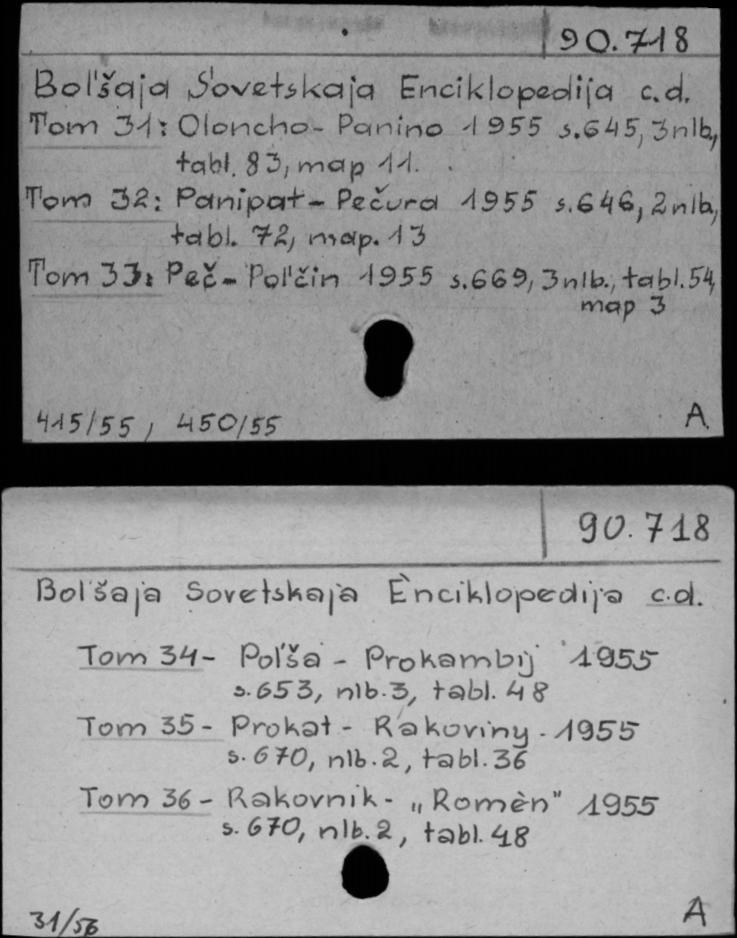 90.718
Bol'šaja Sovetskaja Enciklopedija c.d.
Tom 31: Oloncho - Panino 1955 s.645, 3nlb,
tabl. 83, map 11.
Tom 32: Panipat - Pečura 1955 s.646, 2nlb,
tabl. 72, map. 13
Tom 33: Peč - Pol'čin 1955 s.669, 3nlb., tabl.54,
map 3
415/55, 450/55
A
90.718
Bol'šaja Sovetskaja Ènciklopedija c.d.
Tom 34 - Pol'ša - Prokambij 1955
s.653, nlb.3, tabl. 48
Tom 35 - Prokat - Rakoviny - 1955
s.670, nlb.2, tabl.36
Tom 36 - Rakovnik - „Romèn" 1955
s.670, nlb.2, tabl.48
31/56
A